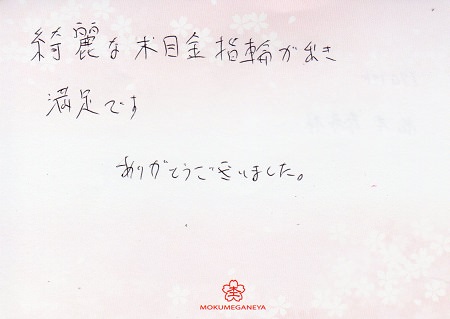 綺麗な木目金指輪ができ
満足です
ありがとうございました。
MOKUMEGANEYA